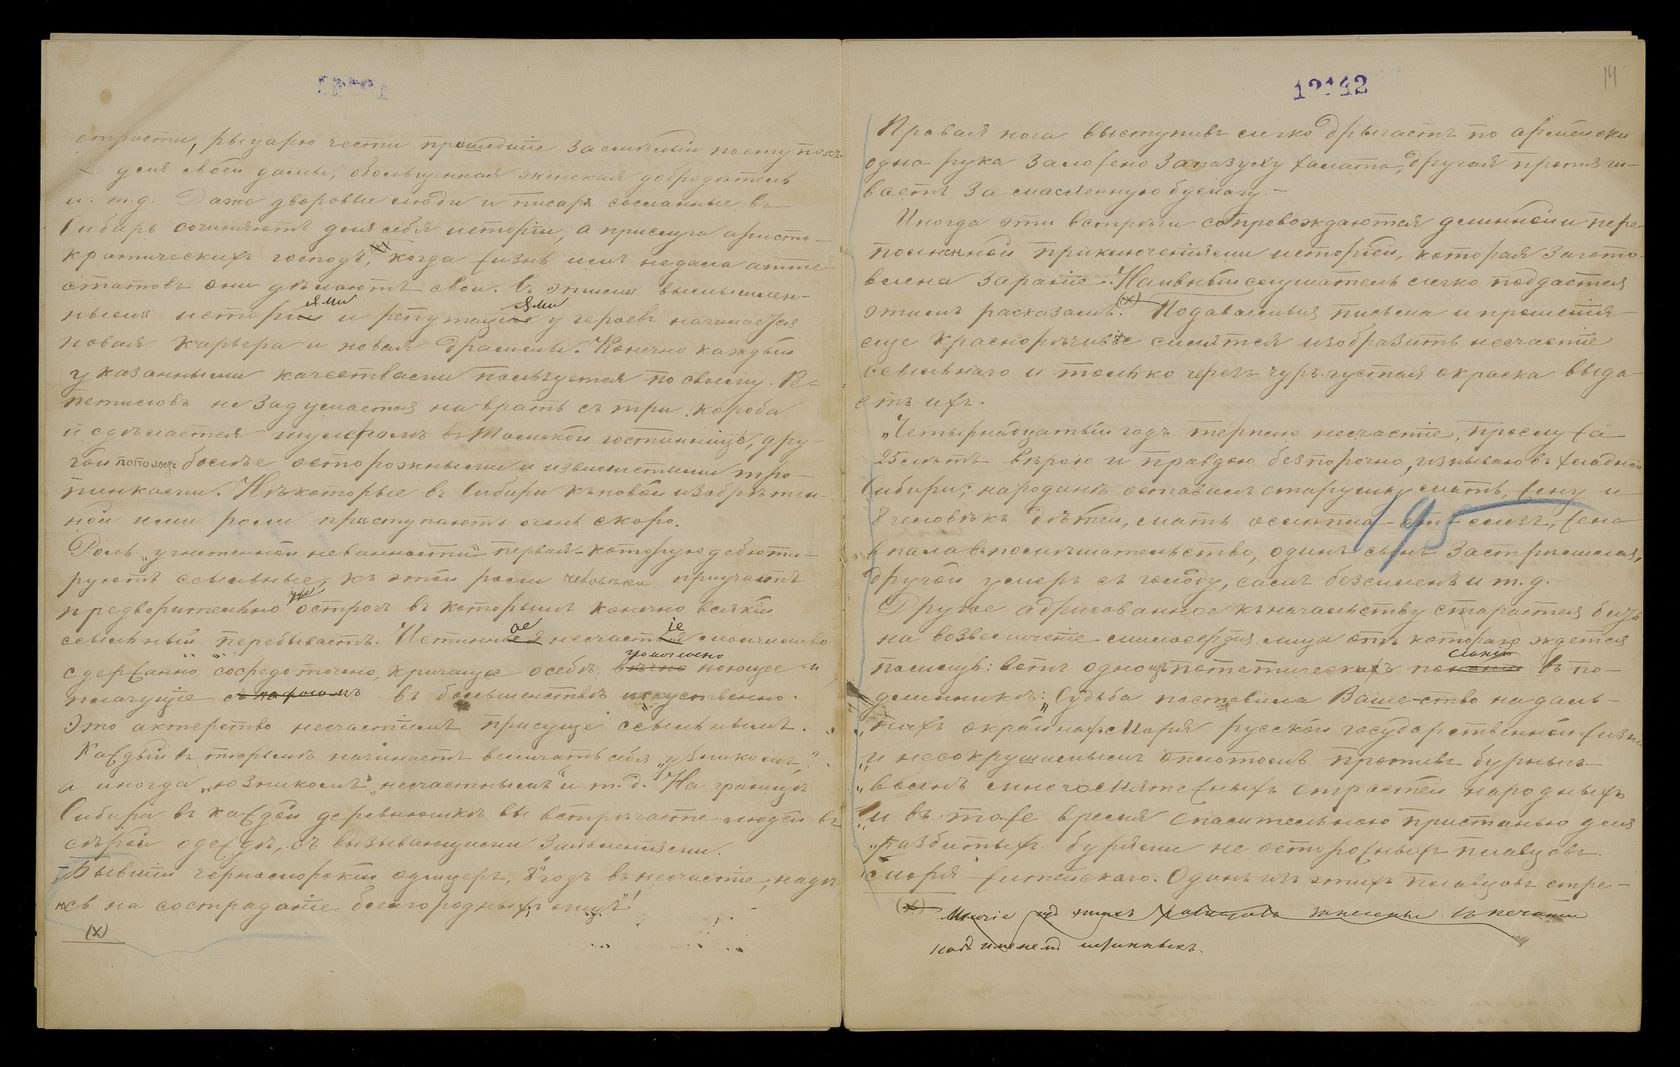 страсти, рыцарю чести прошедшіе за смѣлый поступокъ
для своей дамы, обольщенная женская добродѣтель
и. т. д. Даже дворовые люди и писаря сосланные въ
Сибирь сочиняютъ для себя исторіи, а прислуга аристо-
кратическихъ господъ, когда жизнь имъ не дала атте-
статовъ они дѣлаютъ свои. Съ этими вымышлен-
ями ями
ными исторіи и репутаціи у героевъ начинается
новая карьера и новая драммы. Конечно каждый
указанными качествами пользуется по своему. Ре-
петиловъ не задумается наврать съ три короба
и сдѣлается шулеромъ въ Томской гостинницѣ, дру-
гой болѣе осторожными и извилистыми тро-
пинками. Нѣкоторые въ Сибири къ новой изобрѣтен-
ной ими роли приступаютъ очень скоро.
Роль „угнетенной невинности" первая которую дебюти-
руютъ ссыльные, къ этой роли человѣка пріучаетъ
предворительно острогъ въ которымъ конечно всякій
ссыльный перебываетъ. Истинное несчастіе молчаливо
сдержанно сосредоточно, кричащее особѣ ноющее и
плачущіе съ пафосомъ въ большинствѣ искуственно.
Это актерство несчастіемъ присуще ссыльнымъ.
Каждый въ тюрьмѣ начинаетъ величать себя „убликомъ",
а иногда „юзникомъ" „несчастнымъ" и т. д. На границѣ
Сибири въ каждой деревнюшкѣ вы встрѣчаете людей въ
сѣрой одеждѣ, съ вызывающими заявленіями.
„Бывшій черноморскій офицеръ, 8й годъ въ несчастіи, надѣ-
юсь на состраданіе благородныхъ лицъ"!
(х)
12142
14
Правая нога выступивъ слегко дрыгаетъ по армейски
одна рука заложена за пазуху халата, другая протяги-
ваетъ за масленную бумагу.—
Иногда эти встрѣчи сопровождаются длинной и пере-
полненной приключеніями исторіей, которая загото-
влена заранѣе. Наивный слушатель легко поддается
этимъ расказамъ. (х) Подаваемыя письма и прошенія
еще краснорѣчивѣе силятся изобразить несчастіе
ссыльнаго и только черезъ чуръ густая окраска выда-
етъ ихъ.
„Четырнадцатый годъ терплю несчастіе, прослужа
25 лѣтъ вѣрою и правдою безпорочно, изнываю въ хладной
Сибири; на родинѣ оставилъ старушку мать, жену и
8 человѣкъ дѣтей, мать ослѣпла отъ слезъ, жена
впала въ помѣшательство, одинъ сынъ застрѣлился,
другой умеръ съ голоду, самъ безсиленъ и т. д.
195
Другое адрисованное къ начальству старается бить
на возвеличеніе милосердія лица отъ котораго ждется
помощь: вотъ одно изъ потетическихъ посланій въ по-
длинникѣ: „Судьба поставила Ваше-ство на даль-
„нихъ окрайнахъ моря русской государственной жизни
„и несокрушимымъ оплотомъ противъ бурныхъ
„волнъ многомятежныхъ страстей народныхъ
„и въ тоже время спасительною пристанью для
„разбитыхъ бурями не осторожныхъ пловцовъ
„моря житейскаго. Одинъ изъ этихъ пловцовъ стре-
(х) Многіе изъ этихъ разсказовъ занесены въ печати
подъ именемъ истинныхъ.